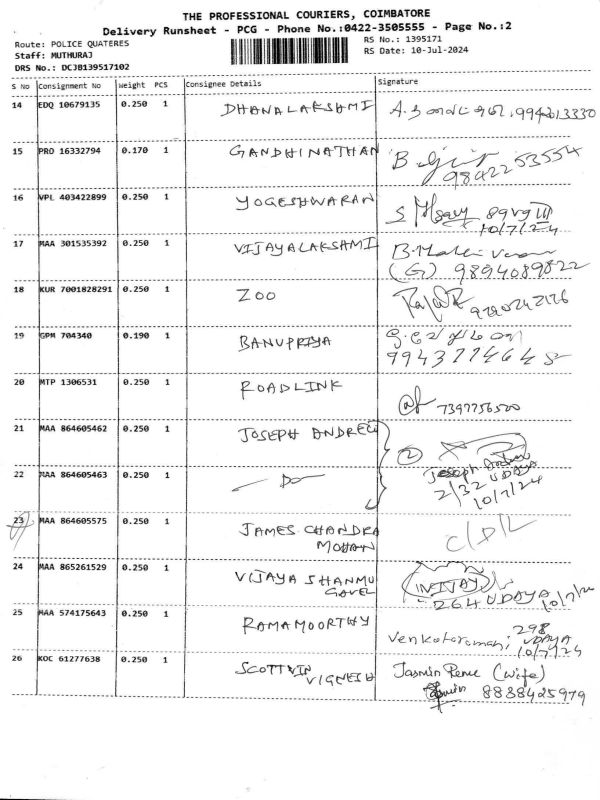 THE PROFESSIONAL COURIERS, COIMBATORE
Delivery Runsheet - PCG - Phone No.:0422-3505555 - Page No.:2
Route: POLICE QUATERES
RS No.: 1395171
Staff: MUTHURAJ
RS Date: 10-Jul-2024
DRS No.: DCJB139517102
S No Consignment No Weight PCS Consignee Details Signature
14 EDQ 10679135 0.250 1 DHANALAKSHMI
15 PRO 16332794 0.170 1 GANDHINATHAN B
9842253554
16 VPL 403422899 0.250 1 YOGESHWARAN S
10/7/24
17 MAA 301535392 0.250 1 VIJAYALAKSHMI B.
(G) 9894089822
18 KUR 7001828291 0.250 1 ZOO
19 GPM 704340 0.190 1 BANUPRIYA
9943774648
20 MTP 1306531 0.250 1 ROADLINK 7397756500
21 MAA 864605462 0.250 1 JOSEPH ANDREW (2)
Joseph
22 MAA 864605463 0.250 1 — Do — 2/32 UDAYA
10/7/24
23 MAA 864605575 0.250 1 JAMES CHANDRA C/D/L
MOHAN
24 MAA 865261529 0.250 1 VIJAYA SHANMU VIJAY
GAVEL 264 UDAYA 10/7/24
25 MAA 574175643 0.250 1 RAMAMOORTHY 298
Venkataramani, UDAYA
10/7/24
26 KOC 61277638 0.250 1 SCOTTVIN Jasmin Rene (wife)
VIGNESH Jasmin 8838425979